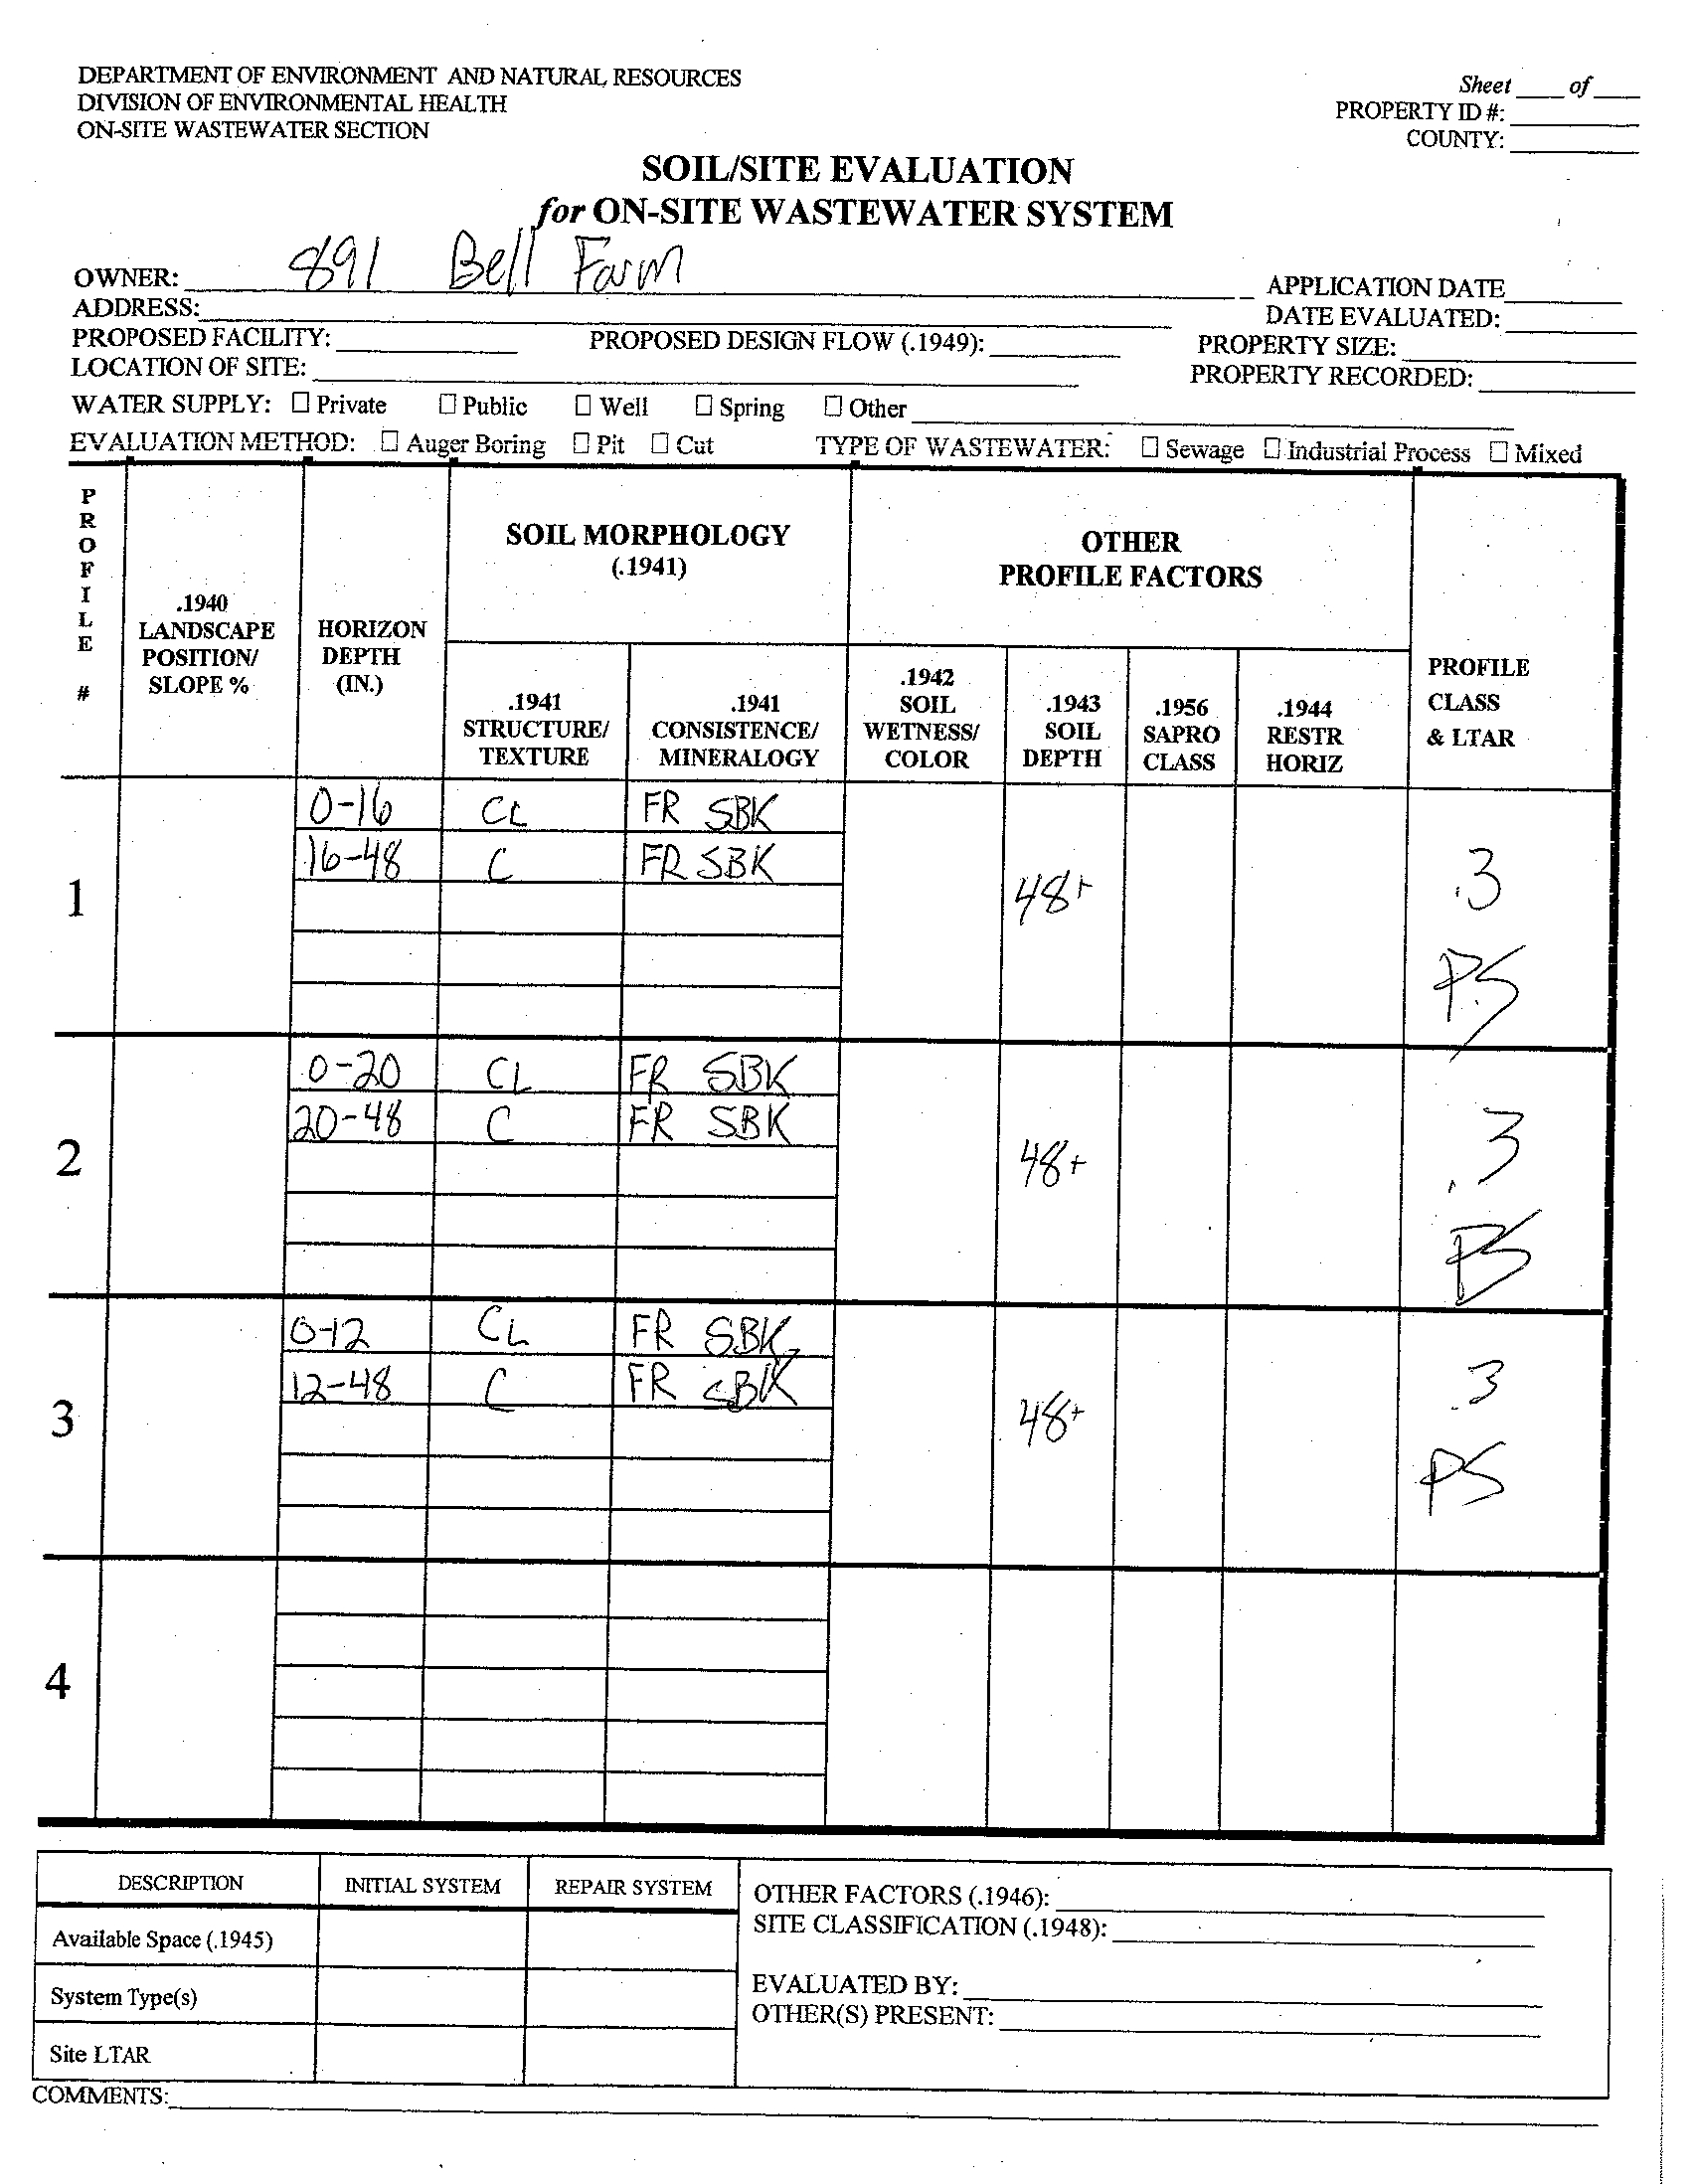 DEPARTMENT OF ENVIRONMENT AND NATURAL RESOURCES
DIVISION OF ENVIRONMENTAL HEALTH
ON-SITE WASTEWATER SECTION
Sheet ____ of ____
PROPERTY ID #:
COUNTY:
SOIL/SITE EVALUATION
for ON-SITE WASTEWATER SYSTEM
OWNER: 891 Bell Farm
APPLICATION DATE
ADDRESS:
DATE EVALUATED:
PROPOSED FACILITY: PROPOSED DESIGN FLOW (.1949): PROPERTY SIZE:
LOCATION OF SITE: PROPERTY RECORDED:
WATER SUPPLY: ☐ Private ☐ Public ☐ Well ☐ Spring ☐ Other
EVALUATION METHOD: ☐ Auger Boring ☐ Pit ☐ Cut TYPE OF WASTEWATER: ☐ Sewage ☐ Industrial Process ☐ Mixed
PROFILE #
.1940 LANDSCAPE POSITION/ SLOPE %
HORIZON DEPTH (IN.)
SOIL MORPHOLOGY
(.1941)
OTHER
PROFILE FACTORS
.1941 STRUCTURE/ TEXTURE
.1941 CONSISTENCE/ MINERALOGY
.1942 SOIL WETNESS/ COLOR
.1943 SOIL DEPTH
.1956 SAPRO CLASS
.1944 RESTR HORIZ
PROFILE CLASS & LTAR
1
0-16 CL FR SBK
16-48 C FR SBK
48+
.3
PS
2
0-20 CL FR SBK
20-48 C FR SBK
48+
.3
PS
3
0-12 CL FR SBK
12-48 C FR SBK
48+
.3
PS
4
DESCRIPTION INITIAL SYSTEM REPAIR SYSTEM
Available Space (.1945)
System Type(s)
Site LTAR
OTHER FACTORS (.1946):
SITE CLASSIFICATION (.1948):
EVALUATED BY:
OTHER(S) PRESENT:
COMMENTS: